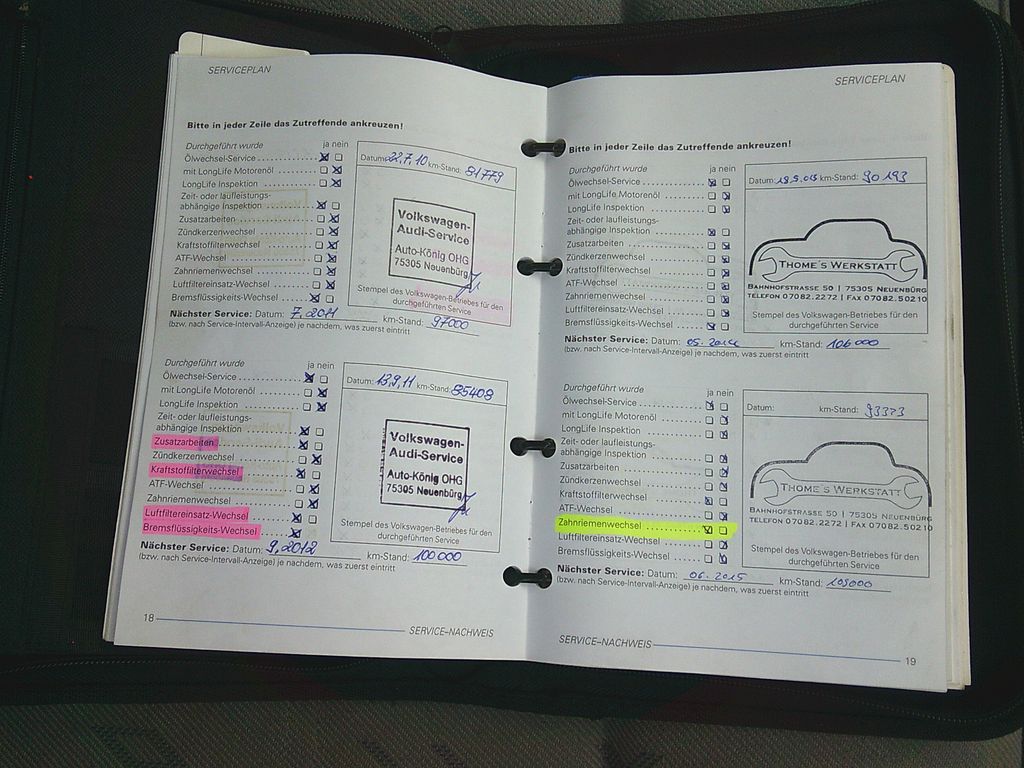 SERVICEPLAN
Bitte in jeder Zeile das Zutreffende ankreuzen!
Durchgeführt wurde ja nein
Ölwechsel-Service
mit LongLife Motorenöl
LongLife Inspektion
Zeit- oder laufleistungs-
abhängige Inspektion
Zusatzarbeiten
Zündkerzenwechsel
Kraftstoffilterwechsel
ATF-Wechsel
Zahnriemenwechsel
Luftfiltereinsatz-Wechsel
Bremsflüssigkeits-Wechsel
Datum: 22.7.10 km-Stand: 81779
Volkswagen-
Audi-Service
Auto-König OHG
75305 Neuenbürg
Stempel des Volkswagen-Betriebes für den
durchgeführten Service
Nächster Service: Datum: 7.2011 km-Stand: 97000
(bzw. nach Service-Intervall-Anzeige) je nachdem, was zuerst eintritt
Durchgeführt wurde ja nein
Ölwechsel-Service
mit LongLife Motorenöl
LongLife Inspektion
Zeit- oder laufleistungs-
abhängige Inspektion
Zusatzarbeiten
Zündkerzenwechsel
Kraftstoffilterwechsel
ATF-Wechsel
Zahnriemenwechsel
Luftfiltereinsatz-Wechsel
Bremsflüssigkeits-Wechsel
Datum: 13.9.11 km-Stand: 85408
Volkswagen-
Audi-Service
Auto-König OHG
75305 Neuenbürg
Stempel des Volkswagen-Betriebes für den
durchgeführten Service
Nächster Service: Datum: 9.2012 km-Stand: 100 000
(bzw. nach Service-Intervall-Anzeige) je nachdem, was zuerst eintritt
18
SERVICE–NACHWEIS
SERVICEPLAN
Bitte in jeder Zeile das Zutreffende ankreuzen!
Durchgeführt wurde ja nein
Ölwechsel-Service
mit LongLife Motorenöl
LongLife Inspektion
Zeit- oder laufleistungs-
abhängige Inspektion
Zusatzarbeiten
Zündkerzenwechsel
Kraftstoffilterwechsel
ATF-Wechsel
Zahnriemenwechsel
Luftfiltereinsatz-Wechsel
Bremsflüssigkeits-Wechsel
Datum: km-Stand: 90 193
THOME'S WERKSTATT
BAHNHOFSTRASSE 50 | 75305 NEUENBÜRG
TELEFON 07082.2272 | FAX 07082.50210
Stempel des Volkswagen-Betriebes für den
durchgeführten Service
Nächster Service: Datum: 05.2014 km-Stand: 106 000
(bzw. nach Service-Intervall-Anzeige) je nachdem, was zuerst eintritt
Durchgeführt wurde ja nein
Ölwechsel-Service
mit LongLife Motorenöl
LongLife Inspektion
Zeit- oder laufleistungs-
abhängige Inspektion
Zusatzarbeiten
Zündkerzenwechsel
Kraftstoffilterwechsel
ATF-Wechsel
Zahnriemenwechsel
Luftfiltereinsatz-Wechsel
Bremsflüssigkeits-Wechsel
Datum: km-Stand: 93373
THOME'S WERKSTATT
BAHNHOFSTRASSE 50 | 75305 NEUENBÜRG
TELEFON 07082.2272 | FAX 07082.50210
Stempel des Volkswagen-Betriebes für den
durchgeführten Service
Nächster Service: Datum: 06.2015 km-Stand:
(bzw. nach Service-Intervall-Anzeige) je nachdem, was zuerst eintritt
SERVICE–NACHWEIS
19